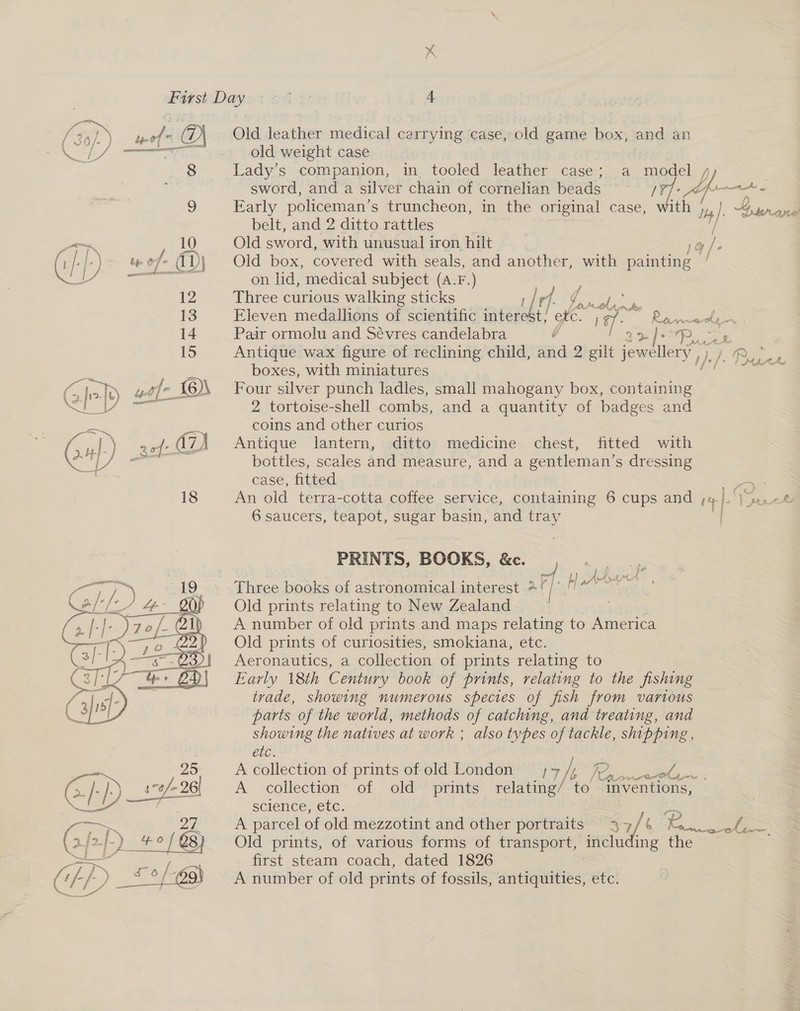 First Day 4
7 Old leather medical carrying case, old game box, and an
old weight case
8 Lady's companion, in tooled leather case; a model
sword, and a silver chain of cornelian beads 17/-
9 Early policeman's truncheon, in the original case, with
belt, and 2 ditto rattles
10 Old sword, with unusual iron hilt 19/-
11 Old box, covered with seals, and another, with painting
on lid, medical subject (A.F.)
12 Three curious walking sticks
13 Eleven medallions of scientific interest, etc.
14 Pair ormolu and Sèvres candelabra 22/-
15 Antique wax figure of reclining child, and 2 gilt jewellery
boxes, with miniatures
16 Four silver punch ladles, small mahogany box, containing
2 tortoise-shell combs, and a quantity of badges and
coins and other curios
17 Antique lantern, ditto medicine chest, fitted with
bottles, scales and measure, and a gentleman's dressing
case, fitted
18 An old terra-cotta coffee service, containing 6 cups and
6 saucers, teapot, sugar basin, and tray
PRINTS, BOOKS, &c.
19 Three books of astronomical interest
20 Old prints relating to New Zealand
21 A number of old prints and maps relating to America
22 Old prints of curiosities, smokiana, etc.
23 Aeronautics, a collection of prints relating to
24 Early 18th Century book of prints, relating to the fishing
trade, showing numerous species of fish from various
parts of the world, methods of catching, and treating, and
showing the natives at work; also types of tackle, shipping,
etc.
25 A collection of prints of old London 17/6
26 A collection of old prints relating to inventions,
science, etc.
27 A parcel of old mezzotint and other portraits 37/6
28 Old prints, of various forms of transport, including the
first steam coach, dated 1826
29 A number of old prints of fossils, antiquities, etc.